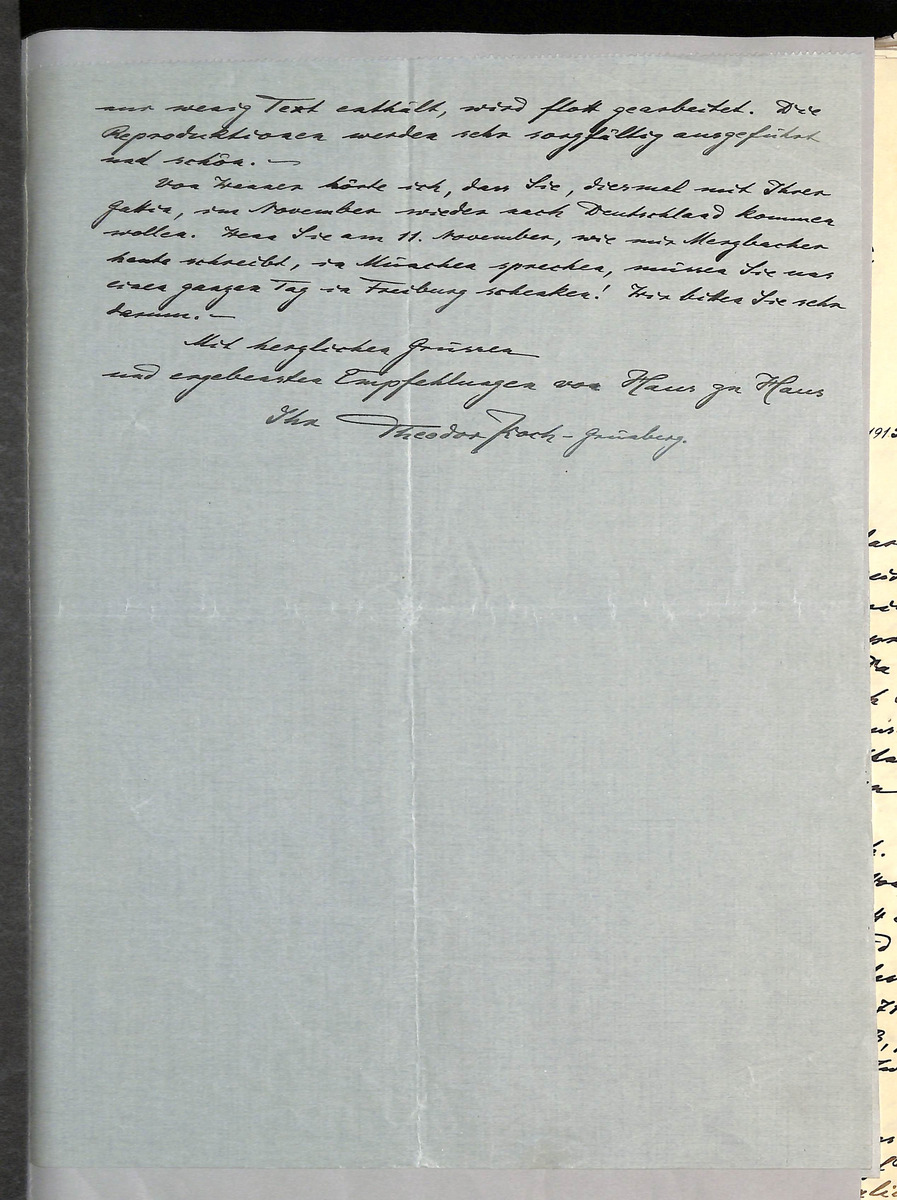 nur wenig Text enthält, wird flott gearbeitet. Die
Reproduktionen werden sehr sorgfältig ausgeführt
und schön. —
Von hörte ich, dass Sie, diesmal mit Ihrer
Gattin, im November wieder nach Deutschland kommen
wollen. Wenn Sie am 11. November, wie mir Merzbacher
heute schreibt, in München sprechen, müssen Sie uns
einen ganzen Tag in Freiburg schenken! Wir bitten Sie sehr
darum. —
Mit herzlichen Grüssen
und ergebensten Empfehlungen von Haus zu Haus
Ihr Theodor Koch-Grünberg.